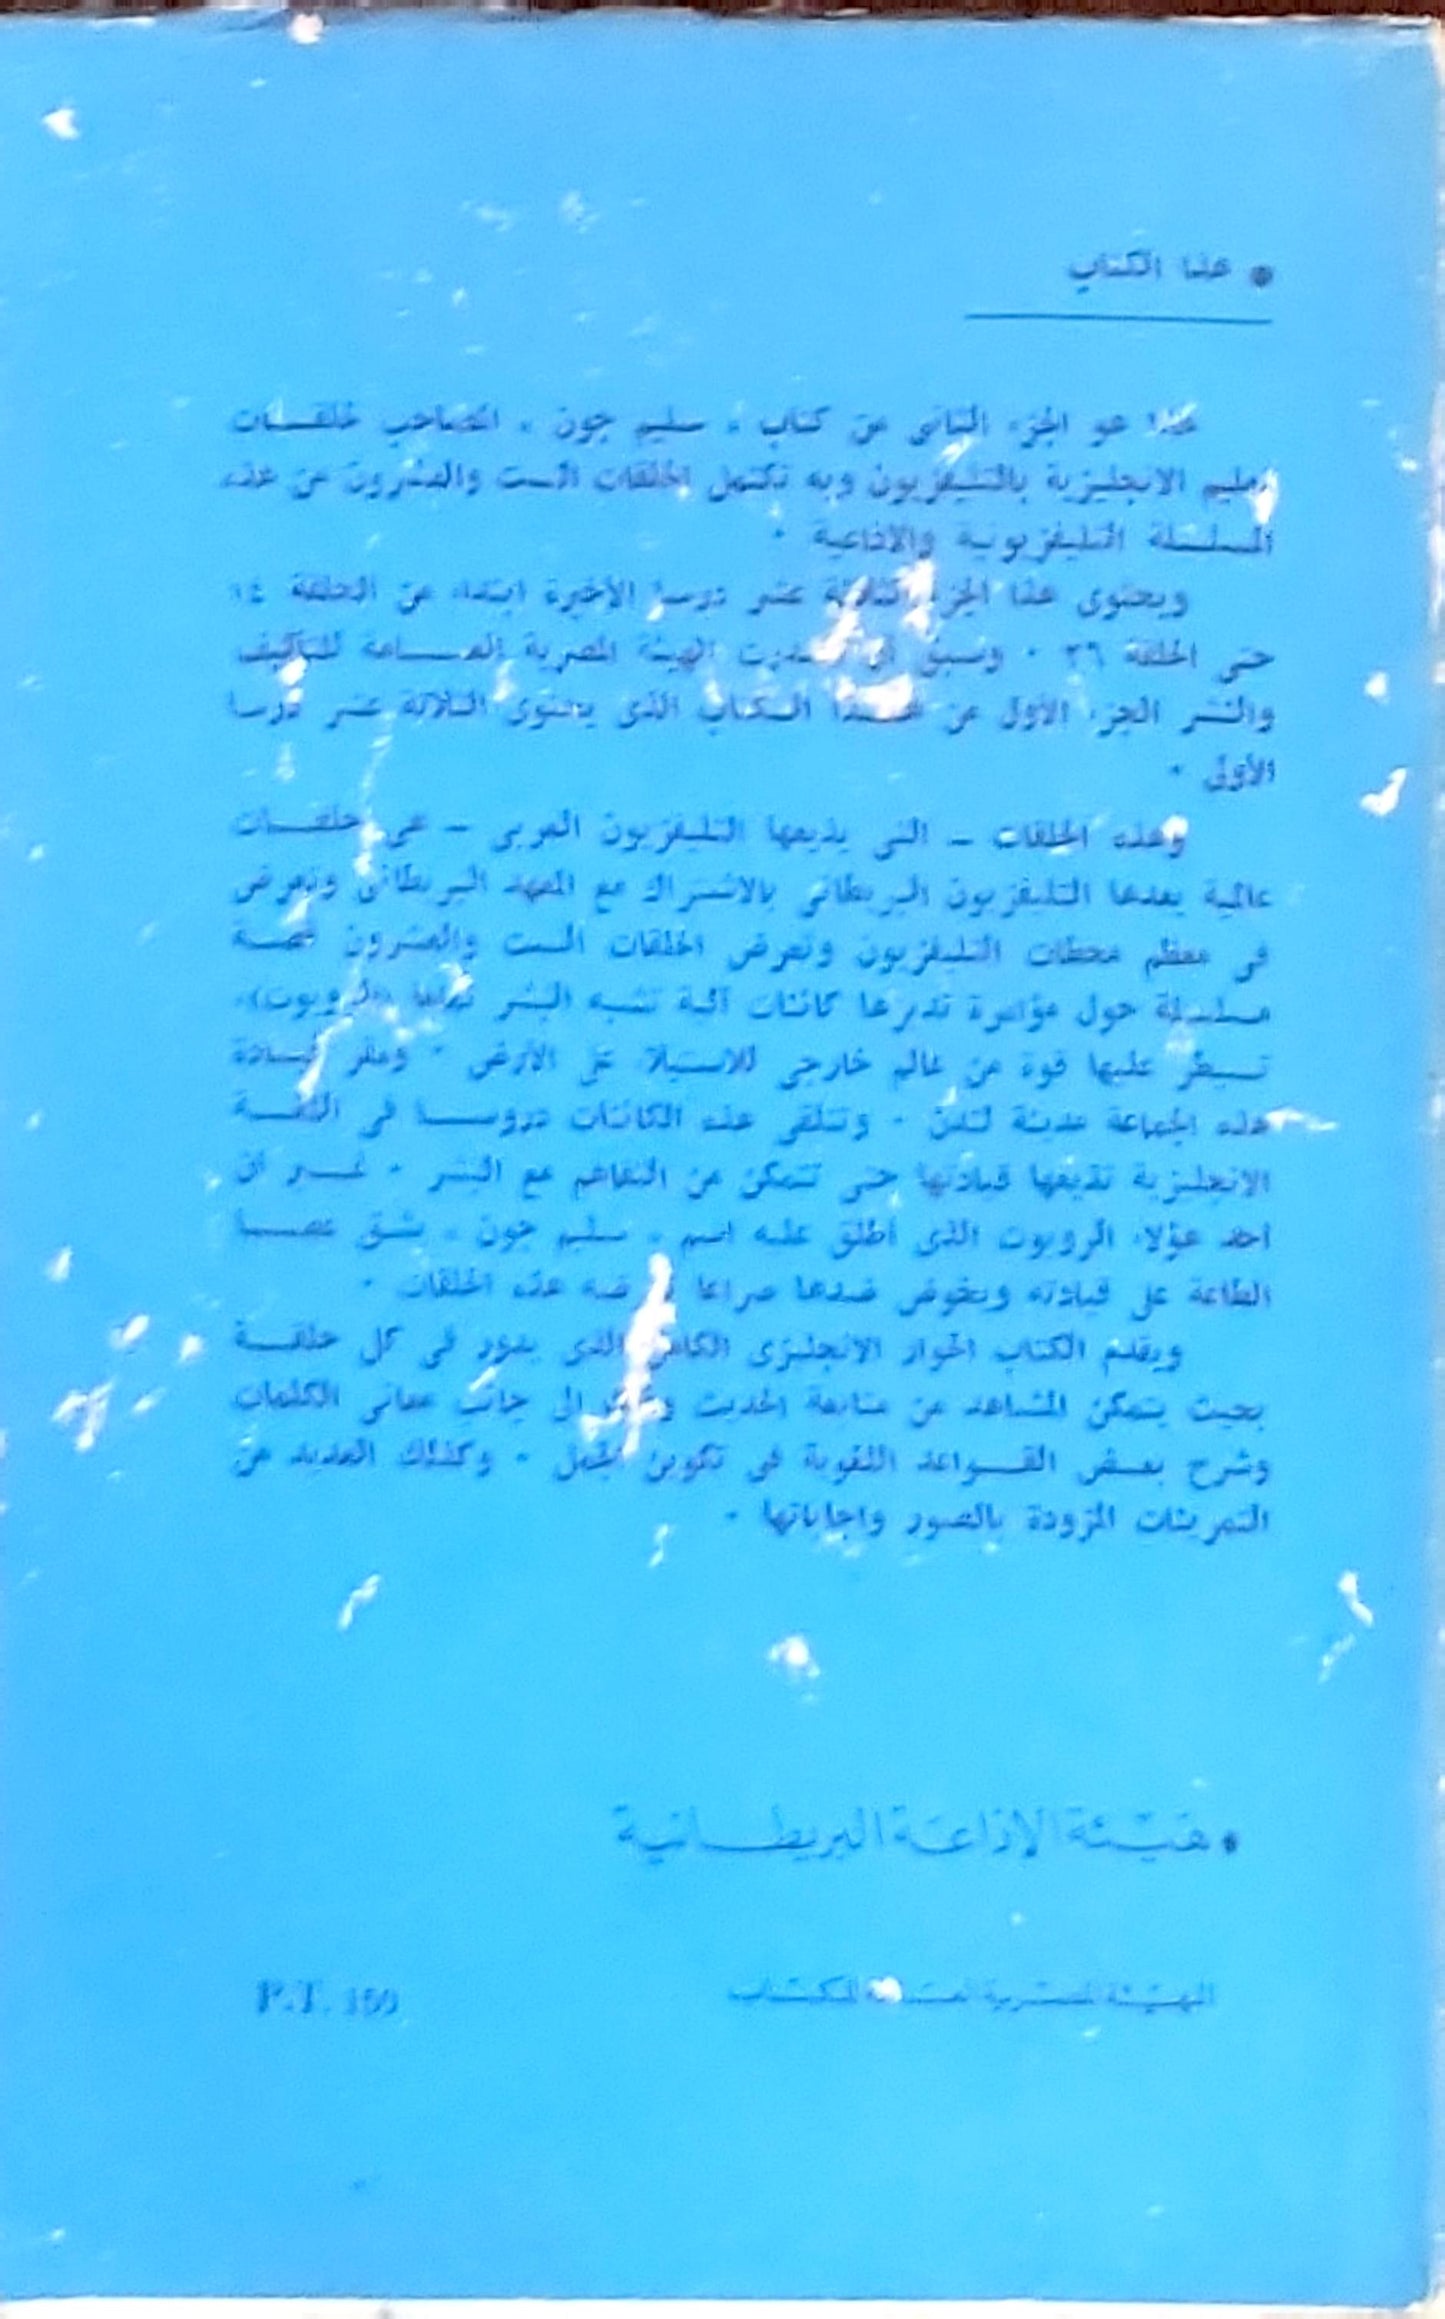 * هذا الكتاب
هذا هو الجزء الثانى من كتاب « سليم جون » المصاحب لحلقــات
تعليم الانجليزية بالتليفزيون وبه تكتمل الحلقات الست والعشرون من هذه
السلسلة التليفزيونية والاذاعية ٠
ويحتوى هذا الجزء الثلاثة عشر درسا الأخيرة ابتداء من الحلقة ١٤
حتى الحلقة ٢٦ ٠ وسبق أن أصدرت الهيئة المصرية العــامة للتأليف
والنشر الجزء الأول من هــذا الكتاب الذى يحتوى الثلاثة عشر درسا
الأولى ٠
وهذه الحلقات ــ التى يذيعها التليفزيون العربى ــ هى حلقــات
عالمية يعدها التليفزيون البريطانى بالاشتراك مع المعهد البريطانى وتعرض
فى معظم محطات التليفزيون وتعرض الحلقات الست والعشرون قصــة
مسلسلة حول مؤامرة تدبرها كائنات آلية تشبه البشر تماما (الروبوت)،
تسيطر عليها قوة من عالم خارجى للاستيلاء على الأرض ٠ ومقر قيــادة
هذه الجماعة مدينة لندن ٠ وتتلقى هذه الكائنات دروســا فى اللغــة
الانجليزية تذيعها قيادتها حتى تتمكن من التفاهم مع البشر ٠ غــير أن
أحد هؤلاء الروبوت الذى أطلق عليه اسم « سليم جون » شــق عصــا
الطاعة على قيادته ويخوض ضدها صراعا هذه الحلقات ٠
ويقدم الكتاب الحوار الانجليزى الكامل الذى يدور فى كل حلقــة
بحيث يتمكن المشاهد من متابعة الحديث الى جانب معانى الكلمات
وشرح بعــض القــواعد اللغوية فى تكوين الجمل ٠ وكذلك العديد من
التمرينات المزودة بالصور واجاباتها ٠
* هيئة الإذاعة البريطانية
الهيئة المصرية العامة للكتاب
P.T. 150